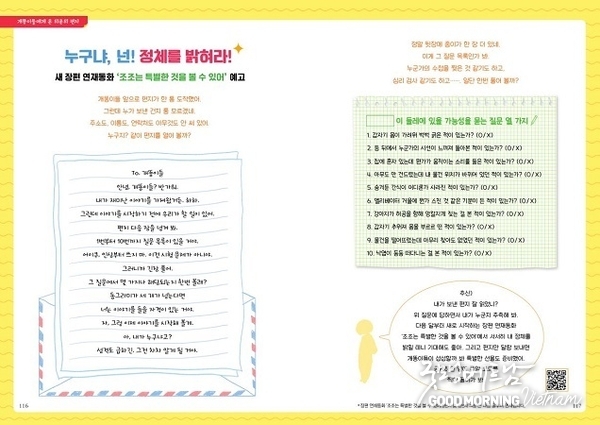 개똥이들에게 온 의문의 편지
누구냐, 넌! 정체를 밝혀라!
새 장편 연재동화 '조조는 특별한 것을 볼 수 있어' 예고
개똥이들 앞으로 편지가 한 통 도착했어.
그런데 누가 보낸 건지 통 모르겠네.
주소도, 이름도, 연락처도 아무것도 안 써 있어.
누구지? 같이 편지를 열어 볼까?
To. 개똥이들
안녕, 개똥이들? 반가워.
내가 재미난 이야기를 가져왔거든. 하하.
그런데 이야기를 시작하기 전에 우리가 할 일이 있어.
편지 다음 장을 넘겨 봐.
1번부터 10번까지 질문 목록이 있을 거야.
어이쿠, 인상부터 쓰지 마. 이건 시험 문제가 아니야.
그러니까 긴장 풀어.
그 질문에서 몇 가지나 해당되는지 한번 볼래?
동그라미가 세 개가 넘는다면
너는 이야기를 들을 자격이 있는 거야.
자, 그럼 이제 이야기를 시작해 볼게.
아, 내가 누구냐고?
성격도 급하긴. 그건 차차 알게 될 거야.
116
정말 뒷장에 종이가 한 장 더 있네.
이게 그 질문 목록인가 봐.
누군가의 수첩을 찢은 것 같기도 하고,
심리 검사 같기도 하고……. 일단 한번 풀어 볼까?
이 둘레에 있을 가능성을 묻는 질문 열 가지
1. 갑자기 몸이 가려워 벅벅 긁은 적이 있는가? (O / X)
2. 등 뒤에서 누군가의 시선이 느껴져 돌아본 적이 있는가? (O / X)
3. 집에 혼자 있는데 뭔가가 움직이는 소리를 들은 적이 있는가? (O / X)
4. 아무도 안 건드렸는데 내 물건 위치가 바뀌어 있던 적이 있는가? (O / X)
5. 숨겨둔 간식이 어디론가 사라진 적이 있는가? (O / X)
6. 엘리베이터 거울에 뭔가 스친 것 같은 기분이 든 적이 있는가? (O / X)
7. 강아지가 허공을 향해 맹렬하게 짖는 걸 본 적이 있는가? (O / X)
8. 갑자기 추위져 몸을 부르르 떤 적이 있는가? (O / X)
9. 물건을 떨어뜨렸는데 아무리 찾아도 없었던 적이 있는가? (O / X)
10. 낙엽이 둥둥 떠다니는 걸 본 적이 있는가? (O / X)
추신)
내가 보낸 편지 잘 읽었니?
위 질문에 답하면서 내가 누군지 추측해 봐.
다음 달부터 새로 시작하는 장편 연재동화
'조조는 특별한 것을 볼 수 있어'에서 서서히 내 정체를
밝힐 테니 기대해도 좋아. 그리고 편지만 달랑 보내면
개똥이들이 섭섭할까 봐 특별한 선물도 준비했어.
굿모닝베트남
GOOD MORNING Vietnam
117